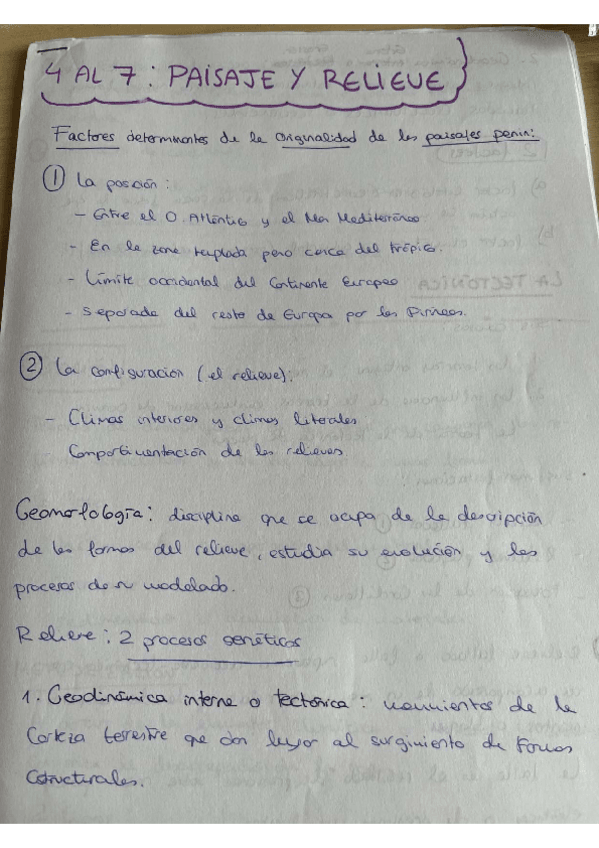 4 AL 7 : PAISAJE Y RELIEVE
Factores determinantes de la originalidad de los paisajes penin:
① La posición :
- Entre el O. Atlántico y el Mar Mediterráneo
- En la zona templada pero cerca del trópico.
- Límite occidental del Continente Europeo
- Separada del resto de Europa por los Pirineos.
② La configuración (el relieve):
- Climas interiores y climas litorales
Compartimentación de los relieves
Geomorfología: disciplina que se ocupa de la descripción
de las formas del relieve, estudia su evolución y los
procesos de su modelado.
Relieve: 2 procesos genéticos
1. Geodinámica interna o tectónica : movimientos de la
Corteza terrestre que dan lugar al surgimiento de formas
estructurales.
LA TECTÓNICA